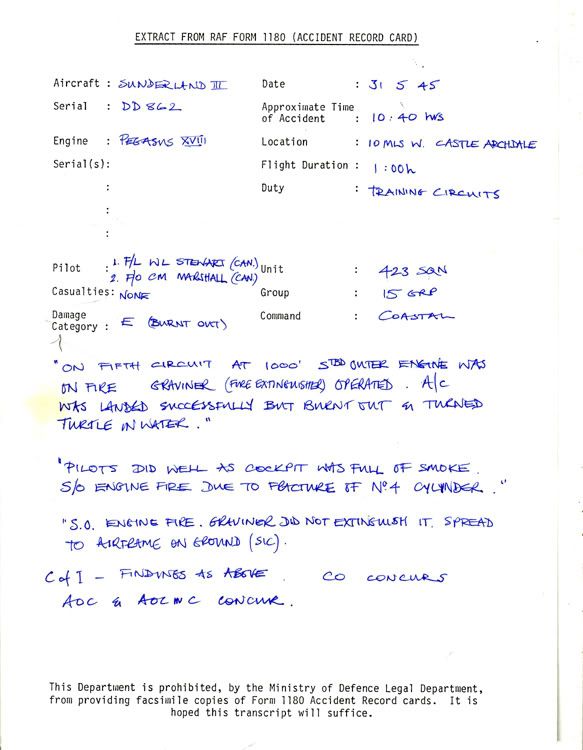 EXTRACT FROM RAF FORM 1180 (ACCIDENT RECORD CARD)
Aircraft : SUNDERLAND III Date : 31 5 45
Serial : DD 862 Approximate Time of Accident : 10:40 HRS
Engine : PEGASUS XVIII Location : 10 MLS W. CASTLE ARCHDALE
Serial(s): Flight Duration : 1:00h
: Duty : TRAINING CIRCUITS
:
:
Pilot : 1. F/L WL STEWART (CAN.) Unit : 423 SQN
2. F/O CM MARSHALL (CAN)
Casualties: NONE Group : 15 GRP
Damage Category : E (BURNT OUT) Command : COASTAL
"ON FIFTH CIRCUIT AT 1000' STBD OUTER ENGINE WAS
ON FIRE GRAVINER (FIRE EXTINGUISHER) OPERATED. A/C
WAS LANDED SUCCESSFULLY BUT BURNT OUT & TURNED
TURTLE IN WATER."
"PILOTS DID WELL AS COCKPIT WAS FULL OF SMOKE.
S/O ENGINE FIRE DUE TO FRACTURE OF Nº4 CYLINDER."
"S.O. ENGINE FIRE. GRAVINER DID NOT EXTINGUISH IT. SPREAD
TO AIRFRAME ON GROUND (SIC).
C of I - FINDINGS AS ABOVE. CO CONCURS
AOC & AOC IN C CONCUR.
This Department is prohibited, by the Ministry of Defence Legal Department,
from providing facsimile copies of Form 1180 Accident Record cards. It is
hoped this transcript will suffice.